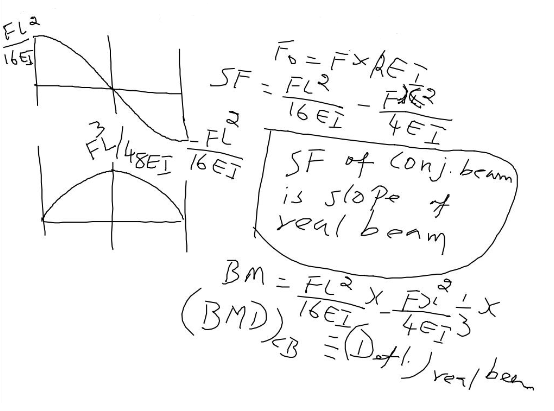 FL²/16EI
F₀ = Fx/2EI
SF = FL²/16EI - Fx²/4EI
FL³/48EI
-FL²/16EI
SF of conj. beam
is slope of
real beam
BM = FL²/16EI x - Fx²/4EI 1/3 x
(BMD)CB ≡ (Defl.) real beam